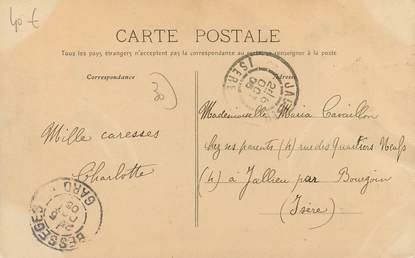 40 €
CARTE POSTALE
Tous les pays étrangers n'acceptent pas la correspondance au recto se renseigner à la poste
Correspondance
Adresse
30
JALLIEU
ISÈRE
Mademoiselle Maria Cavaillon
chez ses parents (4) rue des Quartiers Neufs
(4) à Jallieu par Bourgoin
(Isère)
Mille caresses
Charlotte
BESSEGES
GARD